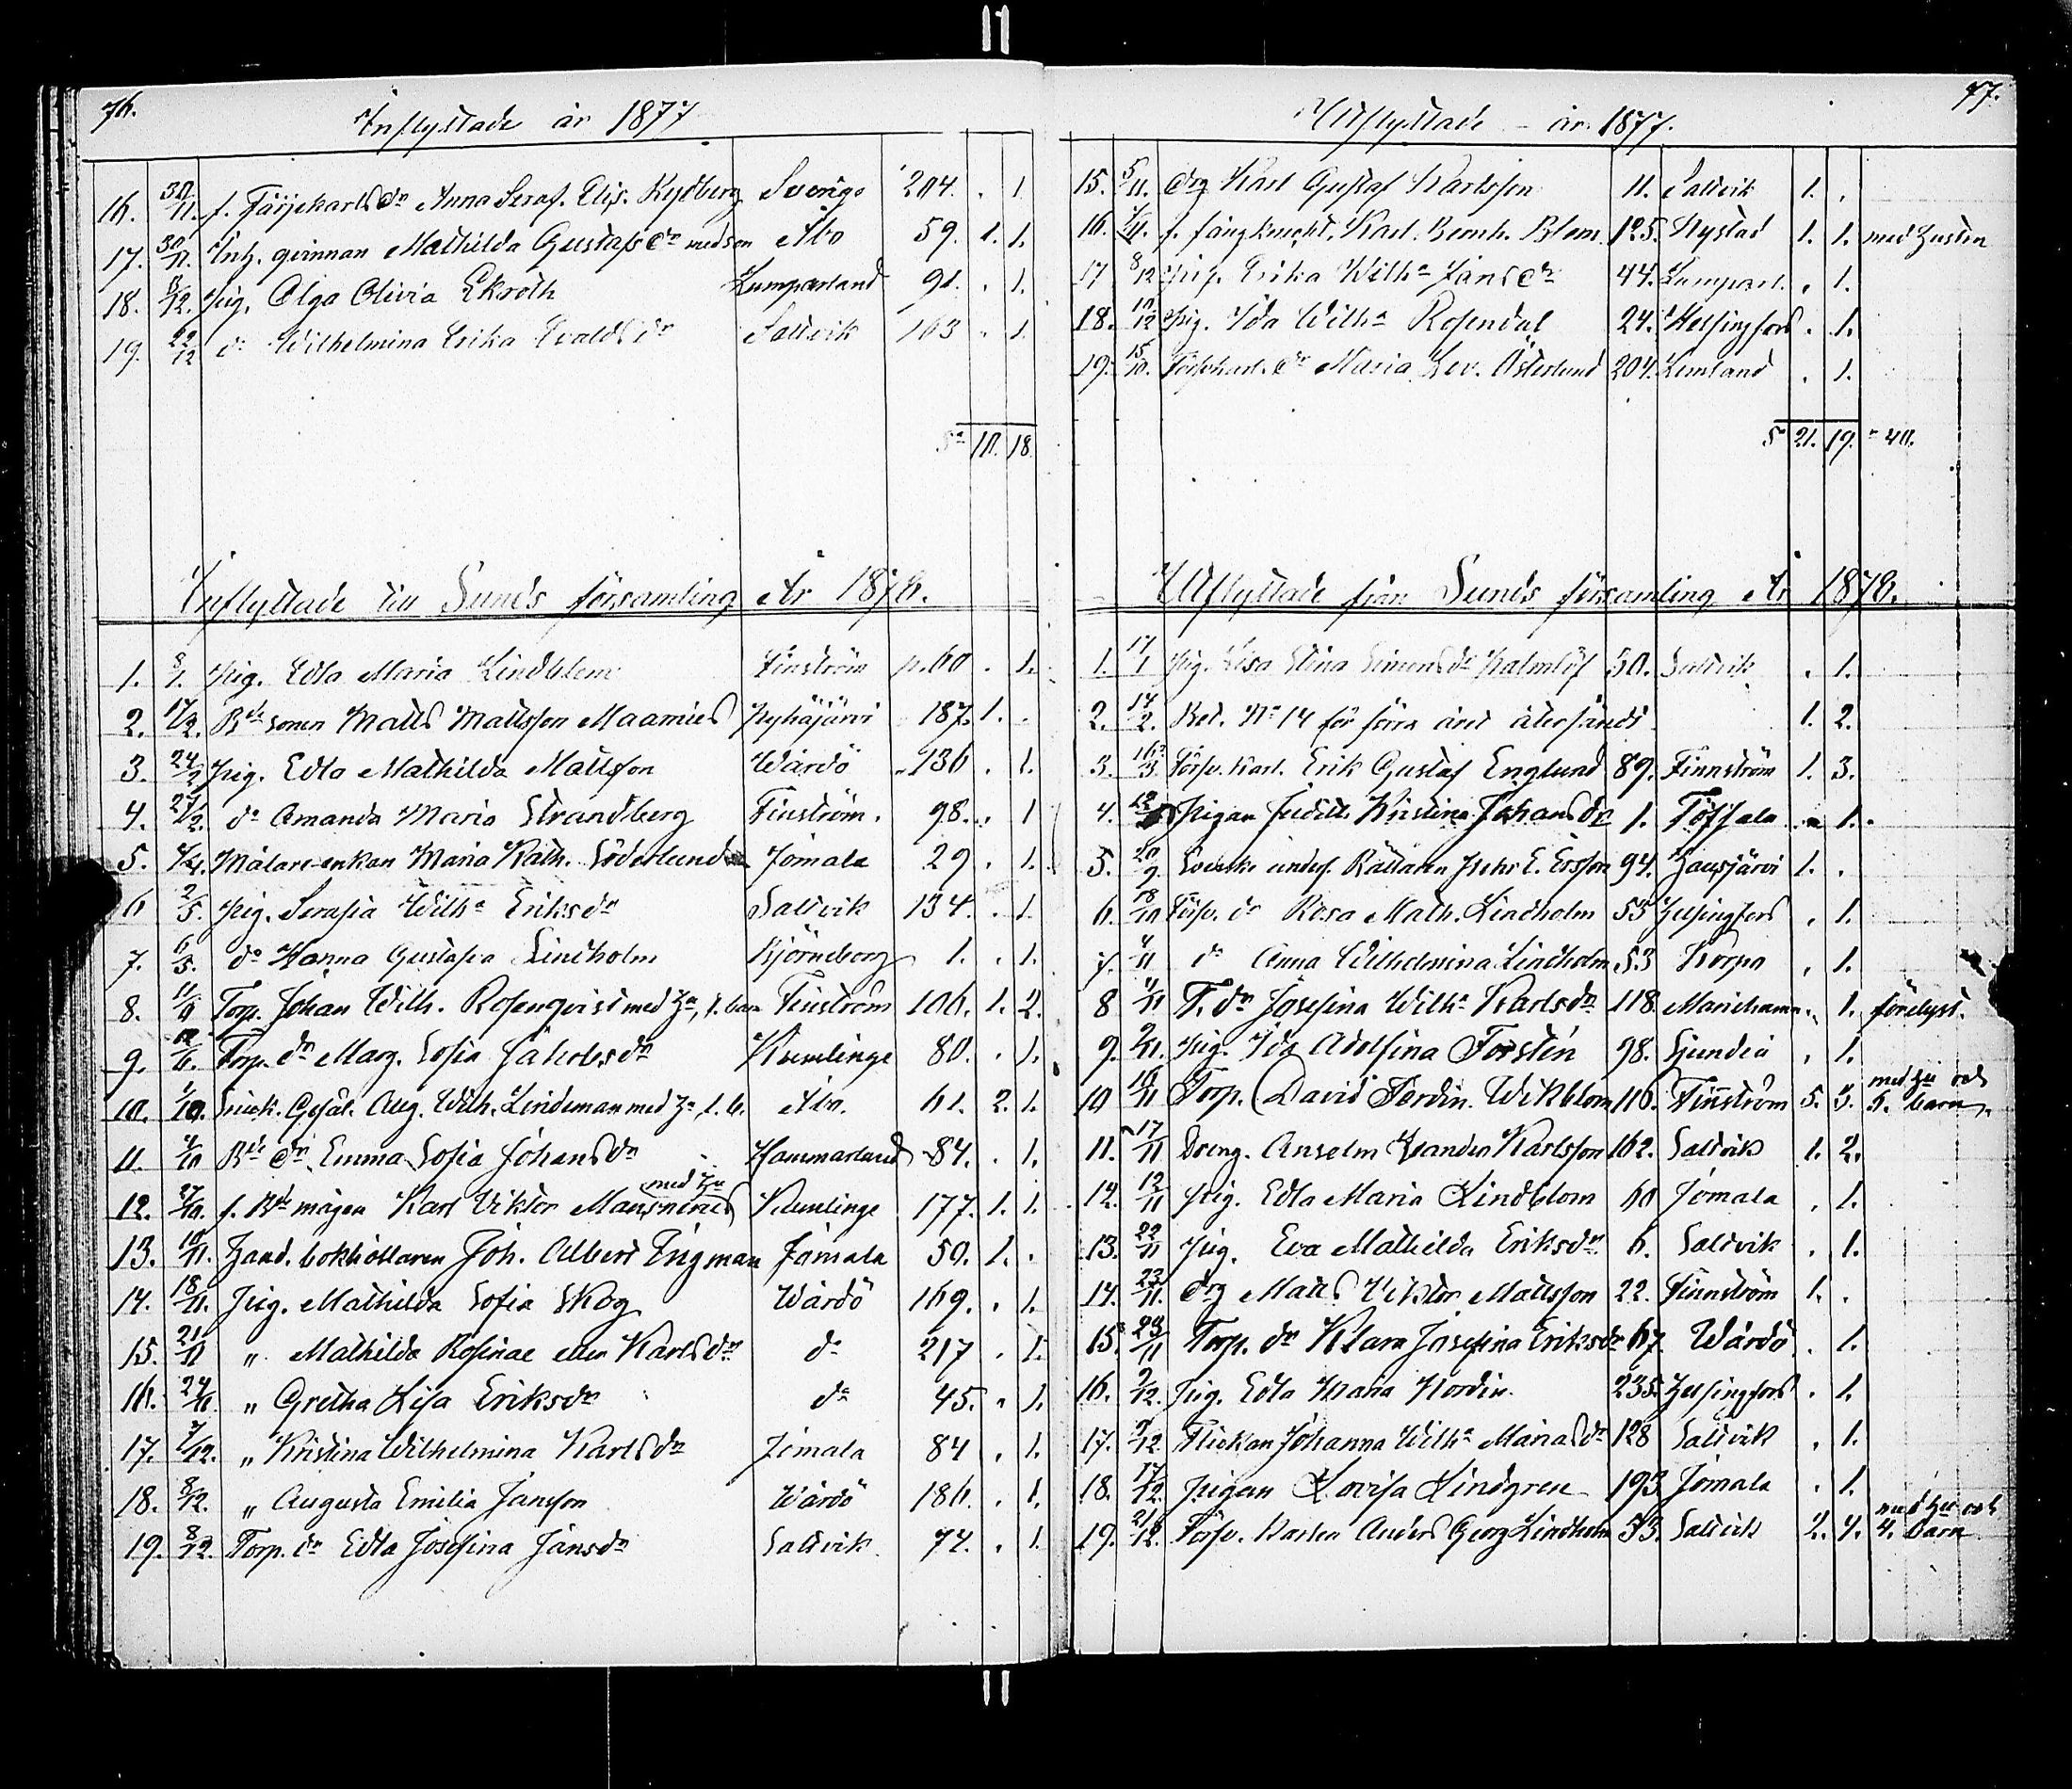 76.
Inflyttade år 1877
16. 30/11. f. Färjekarlsdr Anna Seraf. Elis. Rydberg Sverige 204. . 1
17. 30/11. Inh. qvinnan Mathilda Gustafsdr med son Åbo 59. 1. 1.
18. 8/12. Pig. Olga Olivia Ekroth Lumparland 91. . 1.
19. 22/12 do Wilhelmina Erika Evaldsdr Saltvik 163 . 1.
Sa 10. 18.
Inflyttade till Sunds församling År 1878.
1. 8/1. Pig. Edla Maria Lindblom Finström p. 60 . 1.
2. 17/2. Bdesonen Matts Mattsson Maamies Pyhäjärvi 187. 1. .
3. 24/2 Pig. Edla Mathilda Mattsson Wårdö 136 . 1.
4. 27/2. do Amanda Maria Strandberg Finström. 98. . 1
5. 4/4. Målare-enkan Maria Kath. Söderlund Jomala 29 . 1.
6 2/5. Pig. Serafia Wilha Eriksdr Saltvik 134. . 1.
7. 6/5. do Hanna Gustafva Lindholm Björneborg 1. . 1.
8. 11/9 Torp. Johan Wilh. Rosenqvist med hu, 1. barn Finström 106. 1. 2.
9. Torp. dr Marg. Sofia Jakobsdr Kumlinge 80. . 1.
10. 1/10. Snick. Gesäl. Aug. Wilh. Lindeman med hu 1. b. Åbo. 61. 2. 1.
11. 4/10 Bde dr Emma Sofia Johansdr Hammarland 84. . 1.
12. 27/10. f. Bdmågen Karl Viktor Mansnerus med hu Kumlinge 177. 1. 1.
13. 10/11. Hand. bokhållaren Joh. Albert Engman Jomala 50. 1. .
14. 18/11. Pig. Mathilda Sofia Skog Wårdö 169. . 1.
15. 21/11 „ Mathilda Rosinae eller Karlsdr do 217 . 1.
16. 24/11. „ Gretha Lisa Eriksdr do 45. . 1.
17. 7/12. „ Kristina Wilhelmina Karlsdr Jomala 84 . 1.
18. 8/12. „ Augusta Emilia Jansson Wårdö 186. . 1.
19. 8/12. Torp. dr Edla Josefina Jansdr Saltvik 74. . 1.
77.
Utflyttade – år 1877.
15. 5/11. Drg Karl Gustaf Karlsson 11. Saltvik 1. .
16. f. fångknecht. Karl. Bernh. Blom. 125. Nystad 1. 1. med hustru
17 8/12 Pig. Erika Wilha Jansdr 44. Lumparl. . 1.
18. 10/12 Pig. Ida Wilha Rosendal 24. Helsingfors . 1.
19. 15/10. dr Maria Lov. Österlund 204. Lemland . 1.
Sa 21. 19. = 40.
Utflyttade från Sunds församling År 1878.
1. 17/1 Pig. Lisa Stina Simonsdr Palmlöf 50. Saltvik . 1.
2. 14/2. Bet. No 14 för förra året återsändt 1. 2.
3. 16/3 Torp. karl. Erik Gustaf Englund 89. Finnström 1. 3.
4. Pigan Judith Kristina Johansdr 1. Töfsala . 1.
5. 20/9 Svenske unders. Rättaren Johs E. Ersson 94. Hausjärvi 1. .
6. 18/10 Torp. dr Rosa Math. Lindholm 53 Helsingfors . 1.
7. 4/11 do Anna Wilhelmina Lindholm 53 Korpo . 1.
8 9/11 T. dr Josefina Wilha Karlsdr 118. Mariehamn . 1. förelyst.
9. 9/11. Pig. Ida Adolfina Forstén 98. Sjundeå . 1.
10 16/11 Torp. David Ferdin. Wikblom 116. Finnström 5. 3. med hu och 5. barn.
11. 17/11 Dreng. Anselm Evander Karlsson 162. Saltvik 1. 2.
12. 12/11 Pig. Edla Maria Lindblom 60 Jomala . 1.
13. 22/11 Pig. Eva Mathilda Eriksdr 6. Saltvik . 1.
14. 23/11. Drg Matts Viktor Mattsson 22. Finnström 1. .
15. 23/11 Torp. dr Klara Josefina Eriksdr 67. Wårdö . 1.
16. 9/12. Pig. Edla Maria Nordin 235. Helsingfors . 1.
17. 9/12. Flickan Johanna Wilha Mariasdr 128 Saltvik . 1.
18. 17/12. Pigan Lovisa Lindgren 193 Jomala . 1.
19. 21/12. Torp. karlen Anders Georg Lindholm 53. Saltvik 2. 4. med hu och 4. barn